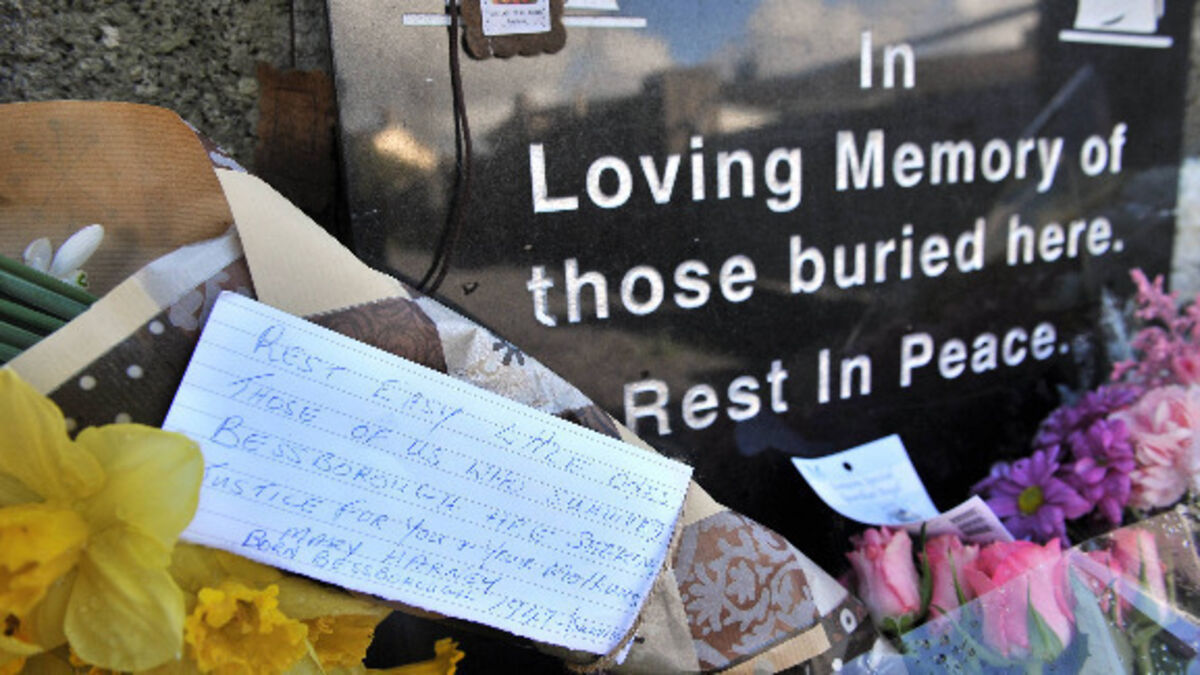 In
Loving Memory of
those buried here.
Rest In Peace.
REST EASY LITTLE ONES
THOSE OF US WHO SURVIVED
BESSBOROUGH ARE SEEKING
JUSTICE FOR YOU & YOUR MOTHERS
MARY HARNEY
BORN BESSBOROUGH 1949